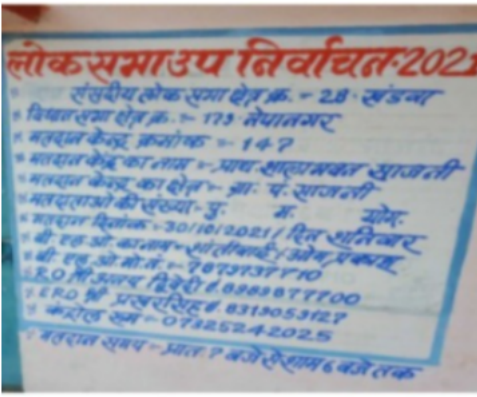 लोकसभा उप निर्वाचन-2021
संसदीय लोक सभा क्षेत्र क्र. - 28 - खंडवा
विधान सभा क्षेत्र क्र. - 179 नेपानगर
मतदान केन्द्र क्रमांक - 147
मतदान केन्द्र का नाम - प्राथ. शाला भवन साजनी
मतदान केन्द्र का क्षेत्र - ग्रा. पं. साजनी
मतदाताओं की संख्या - पु. म. योग.
मतदान दिनांक - 30/10/2021/ दिन शनिवार
बी. एल. ओ. का नाम - शांतीबाई / ओमप्रकाश
बी. एल. ओ. मो. नं. - 7879737710
RO श्री द्विवेदी 8989877700
ERO श्री प्रखरसिंह 8319053127
कंट्रोल रूम - 07325242025
मतदान समय - प्रातः 7 बजे से शाम 6 बजे तक